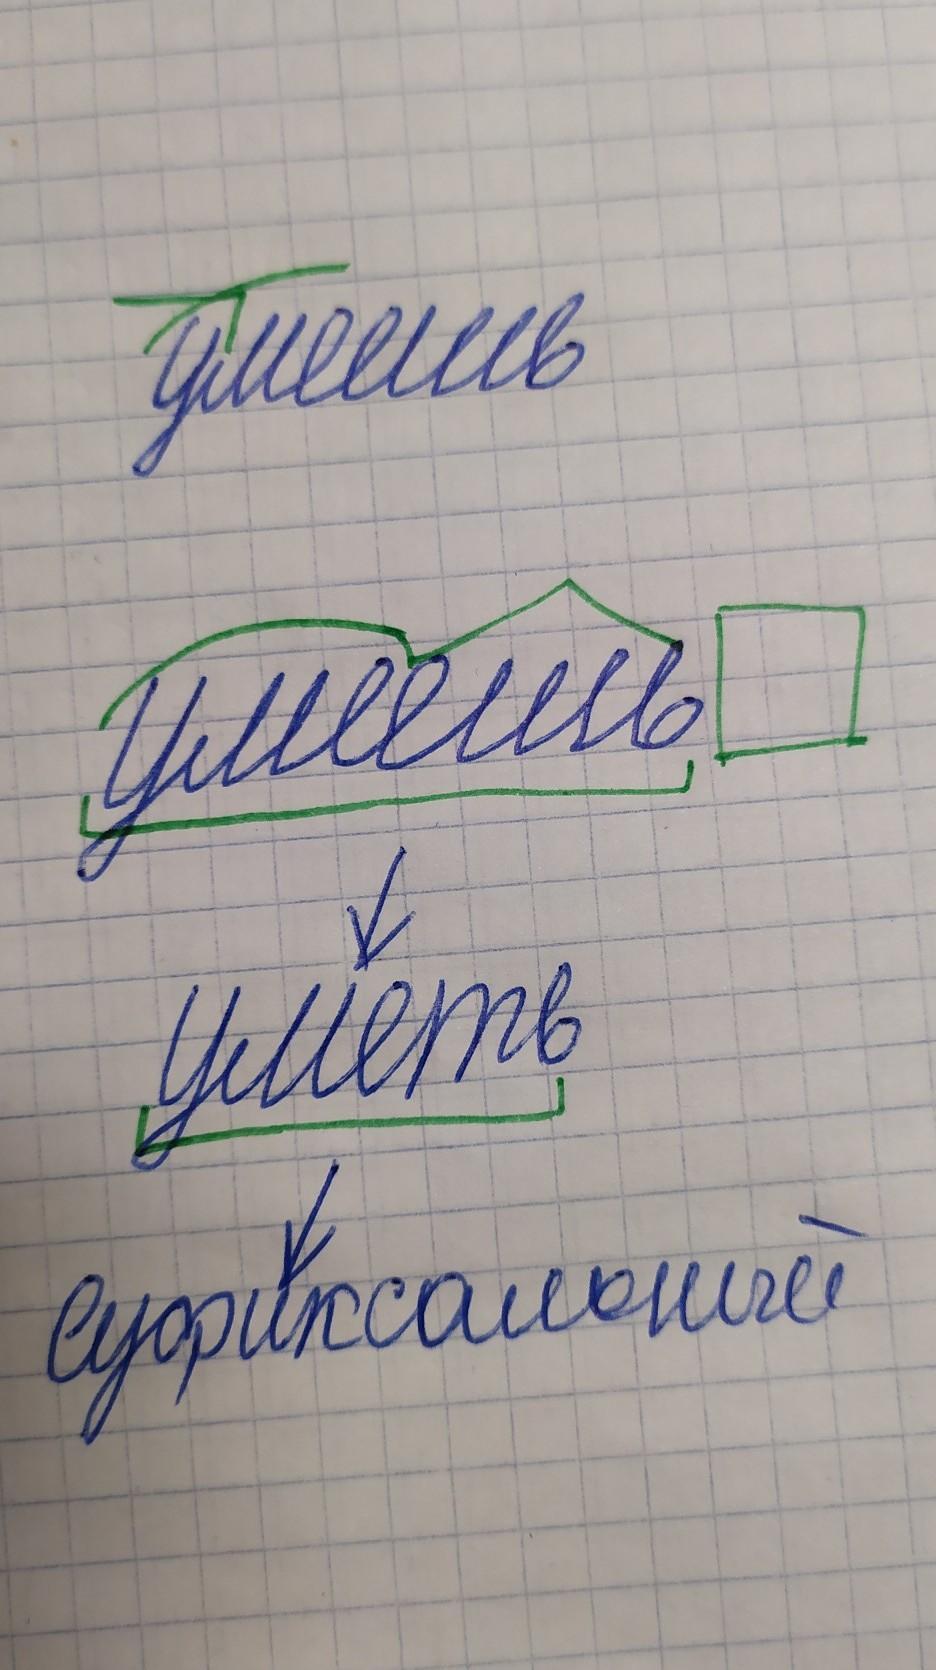 умеешь
умеешь
уметь
Суфиксальный